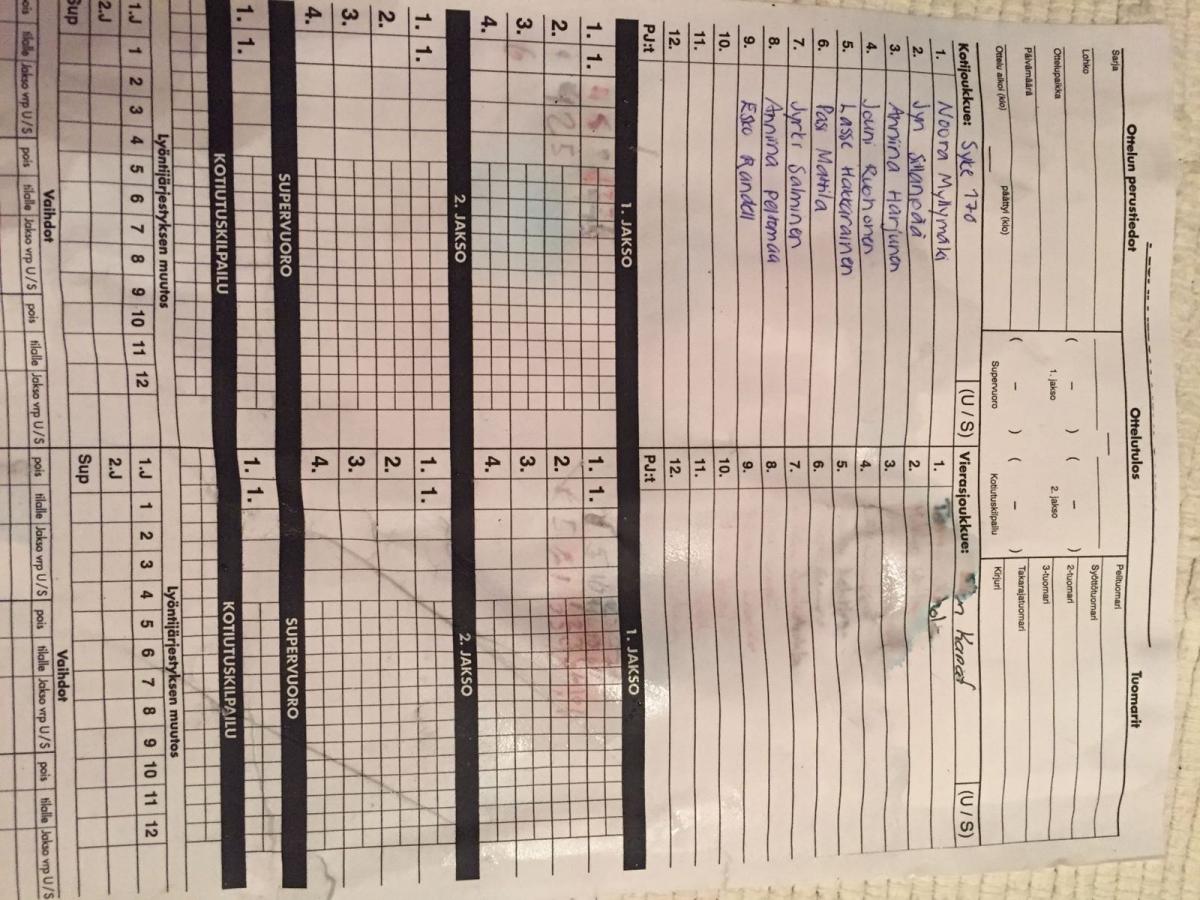 Ottelun perustiedot
Ottelutulos
Tuomarit
Sarja
Lohko
Ottelupaikka
Päivämäärä
Ottelu alkoi (klo)
päättyi (klo)
( – ) ( – )
1. jakso
2. jakso
( – ) ( – )
Supervuoro
Kotiutuskilpailu
Pelituomari
Syöttötuomari
2-tuomari
3-tuomari
Takarajatuomari
Kirjuri
Kotijoukkue: Syke 170 (U / S)
1. Noora Myllymäki
2. Jyri Sillanpää
3. Annina Harjunen
4. Jouni Ruohonen
5. Lasse Hakkarainen
6. Pasi Mattila
7. Jyrki Salminen
8. Annina Peltomaa
9. Esko Randell
10.
11.
12.
PJ:t
Vierasjoukkue: (U / S)
1.
2.
3.
4.
5.
6.
7.
8.
9.
10.
11.
12.
PJ:t
1. JAKSO
1. JAKSO
1. 1.
2.
3.
4.
1. 1.
2.
3.
4.
2. JAKSO
2. JAKSO
1. 1.
2.
3.
4.
1. 1.
2.
3.
4.
SUPERVUORO
SUPERVUORO
1. 1.
1. 1.
KOTIUTUSKILPAILU
KOTIUTUSKILPAILU
Lyöntijärjestyksen muutos
Lyöntijärjestyksen muutos
1.J 1 2 3 4 5 6 7 8 9 10 11 12
2.J
Sup
1.J 1 2 3 4 5 6 7 8 9 10 11 12
2.J
Sup
Vaihdot
Vaihdot
pois tilalle Jakso vrp U/S pois tilalle Jakso vrp U/S pois tilalle Jakso vrp U/S
pois tilalle Jakso vrp U/S pois tilalle Jakso vrp U/S pois tilalle Jakso vrp U/S